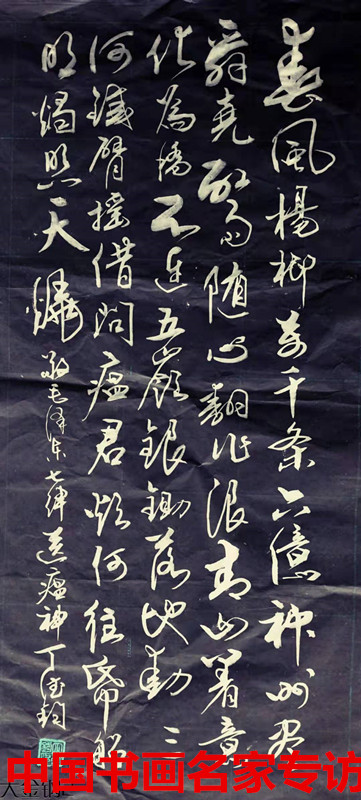 春風楊柳万千条六億神州尽
舜尧红雨随心翻作浪青山着意
化為橋天连五嶺銀鋤落地动三
河鐵臂摇借问瘟君欲何往紙船
明燭照天燒毛泽东七律送瘟神丁
中国书画名家专访